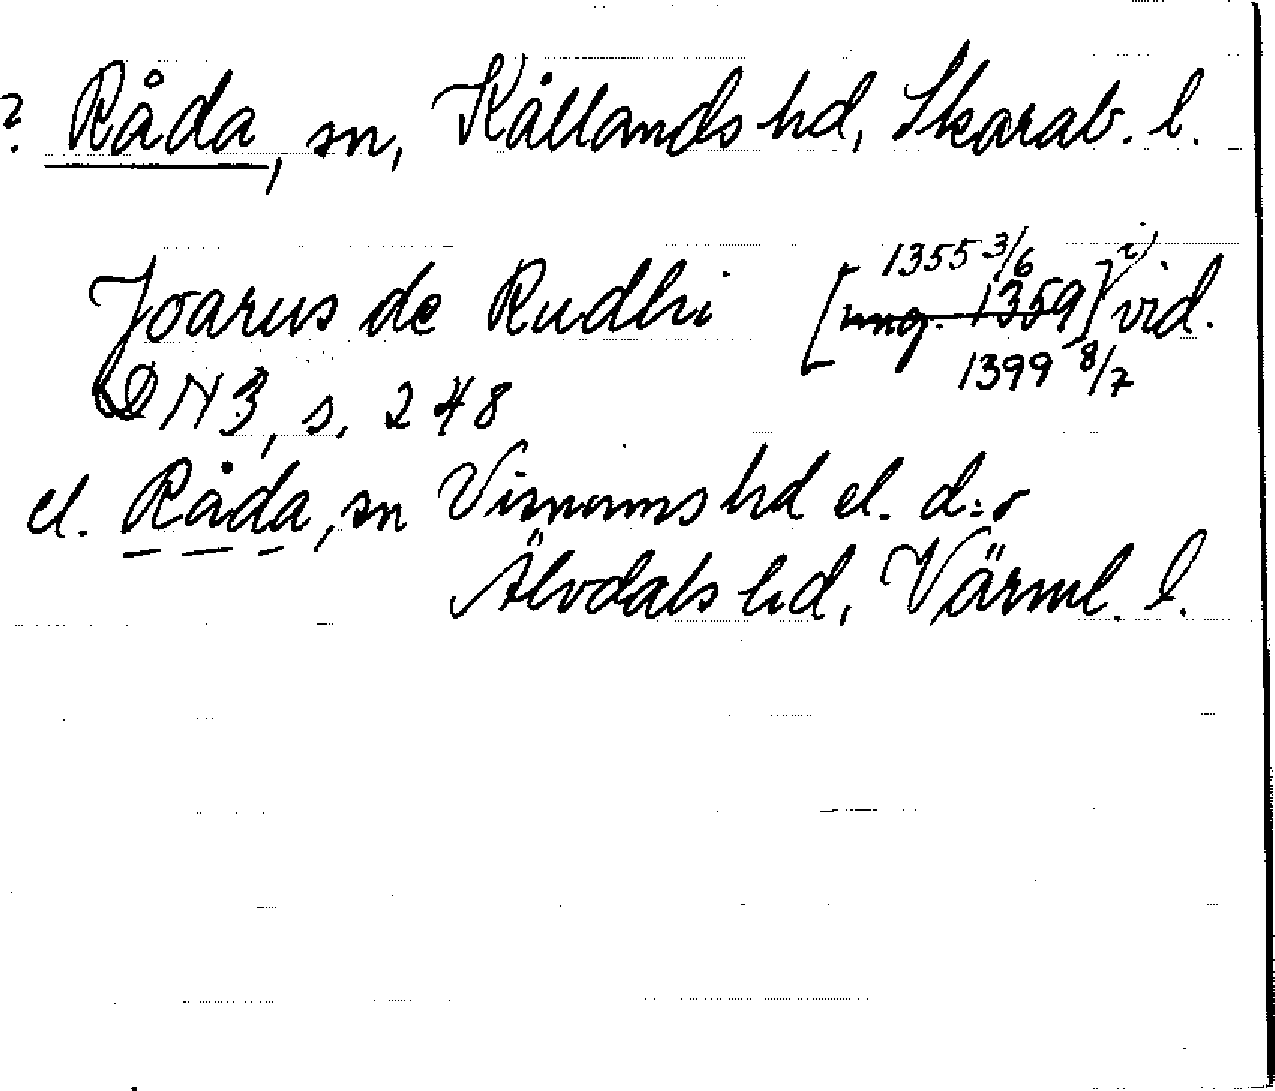 ? Råda, sn, Kållands hd, Skarab. l.
1355 3/6
Joarus de Rudhi [ung. 1359] i vid.
1399 8/7
DN 3, s. 248
el. Råda, sn Visnums hd el. d:o
Älvdals hd, Värml. l.